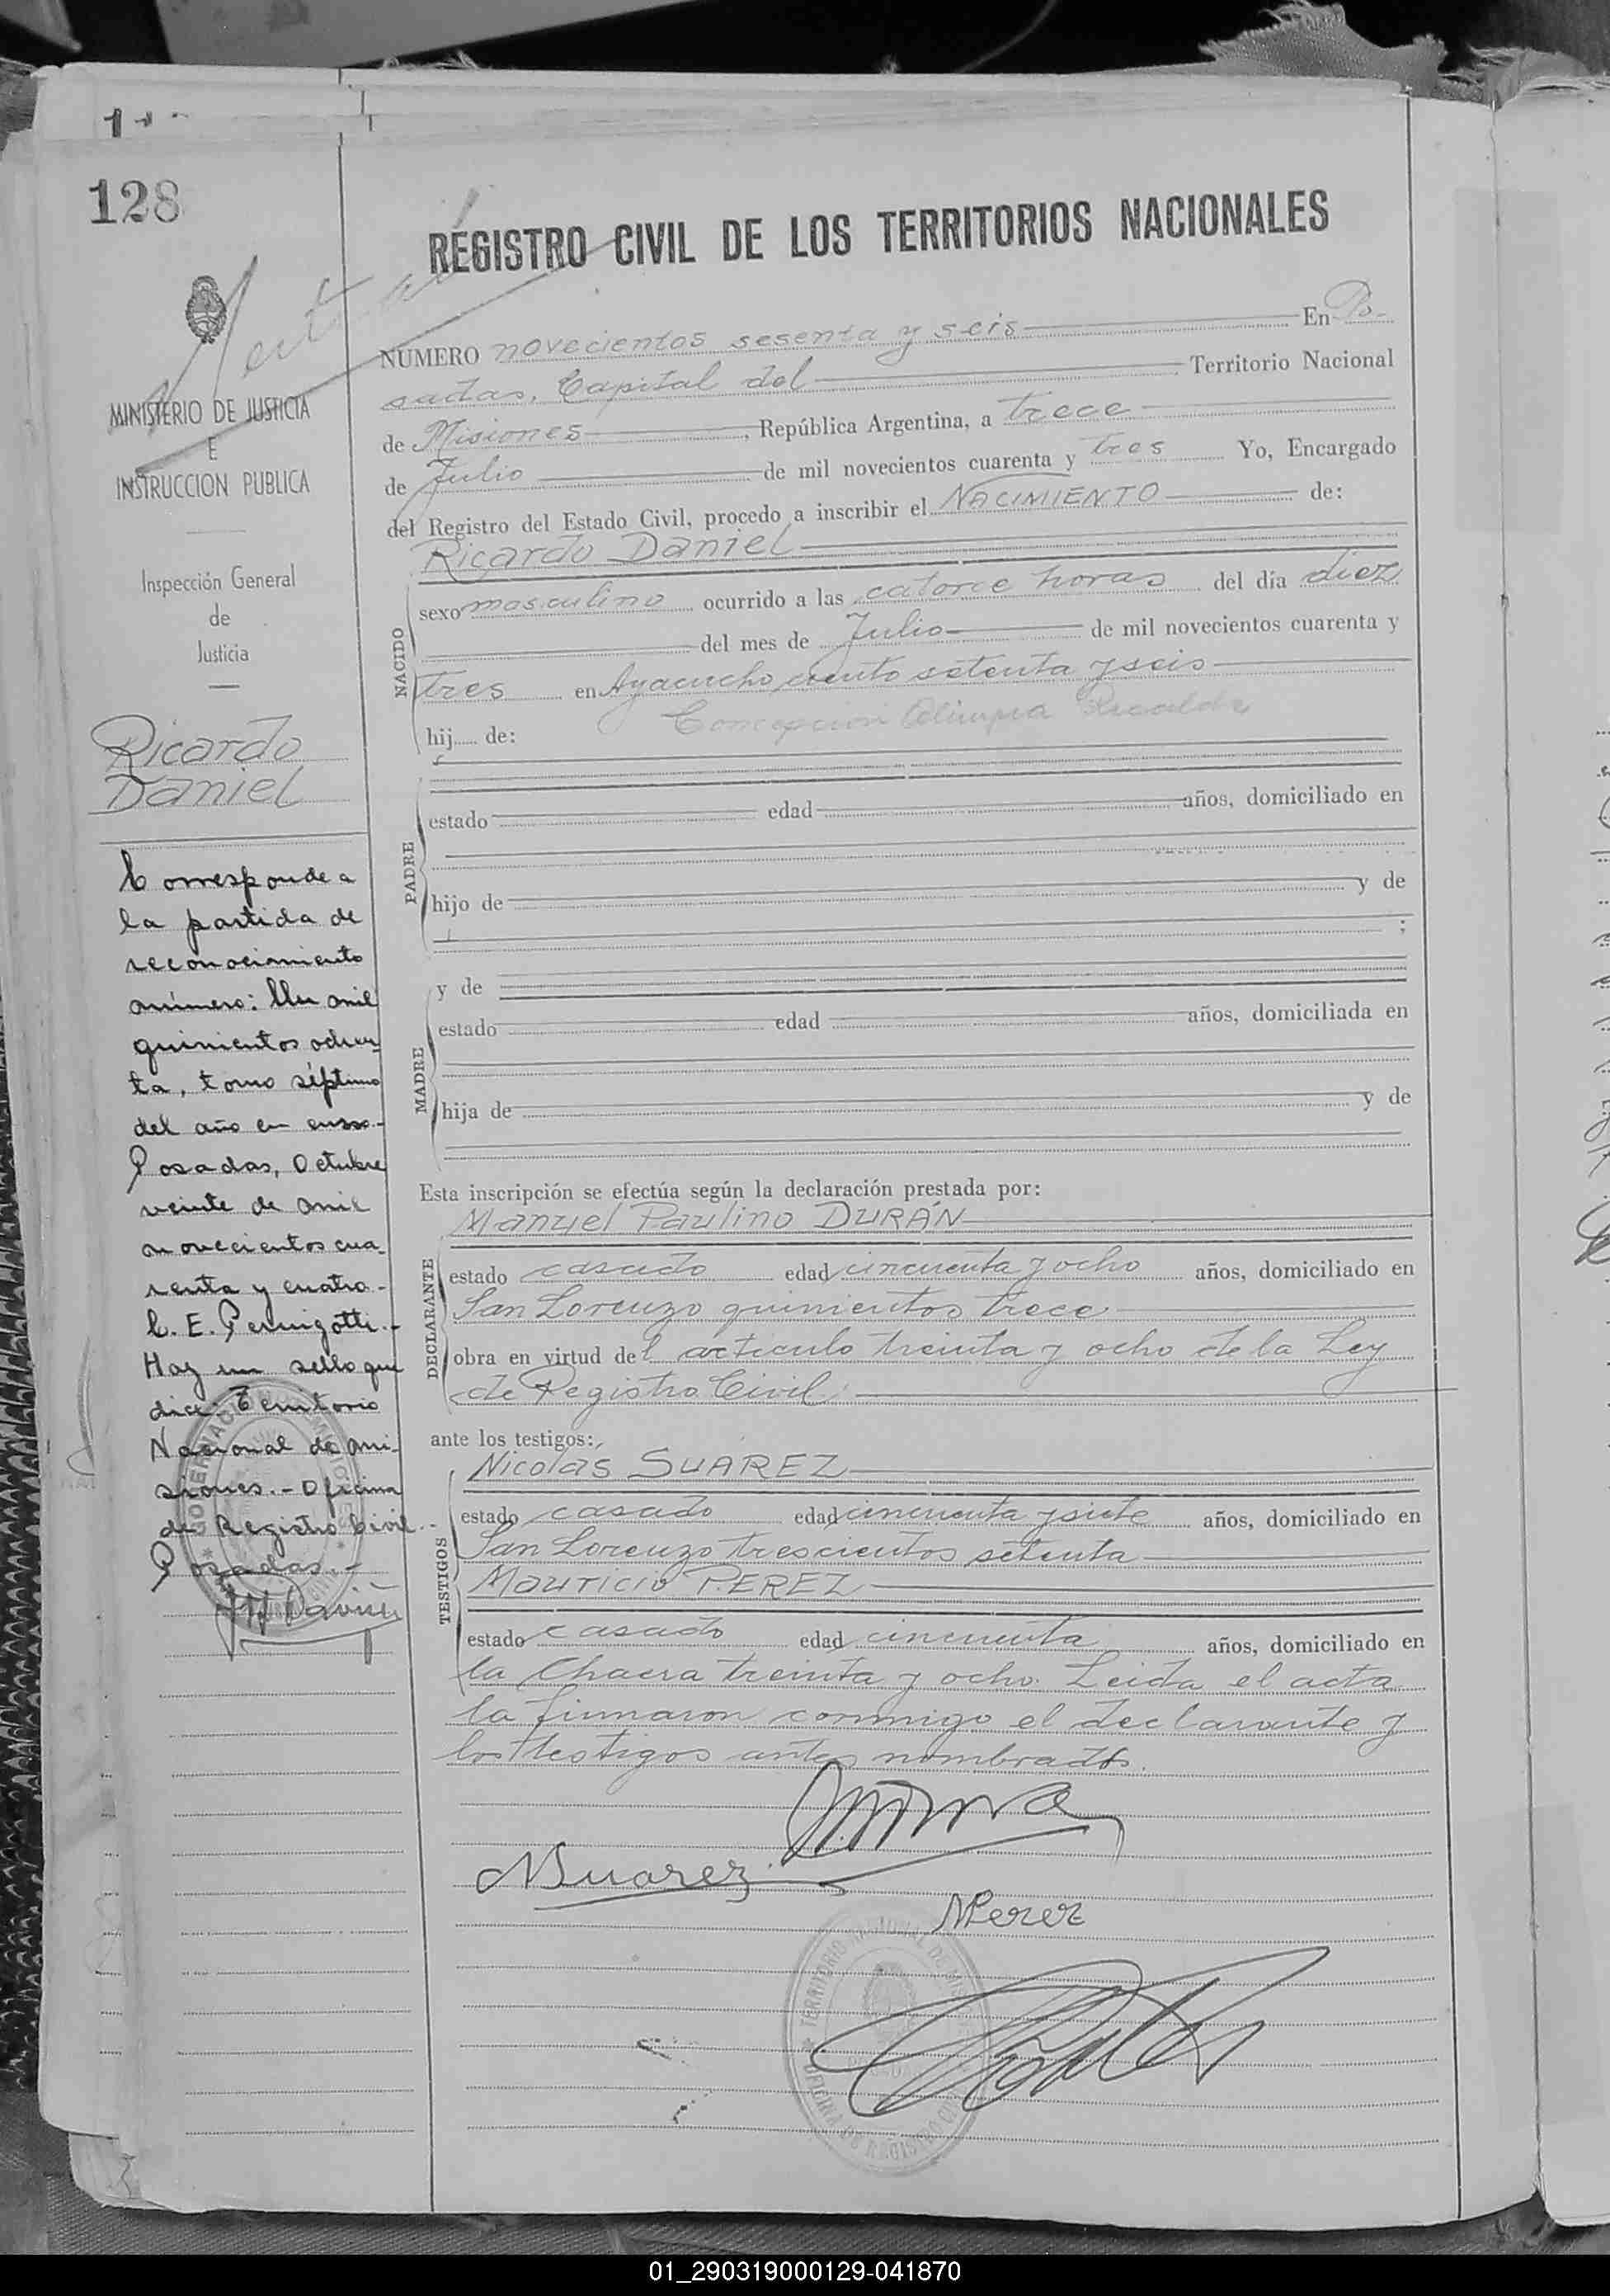 128
REGISTRO CIVIL DE LOS TERRITORIOS NACIONALES
MINISTERIO DE JUSTICIA
E
INSTRUCCION PUBLICA
Inspección General
de
Justicia
Ricardo
Daniel
Corresponde a
la partida de
reconocimiento
número: Un mil
quinientos ochen-
ta, tomo séptimo
del año en curso.-
Posadas, Octubre
veinte de mil
novecientos cua-
renta y cuatro.-
C. E. Pernigotti.-
Hay un sello que
dice: Territorio
Nacional de Mi-
siones.- Oficina
de Registro Civil.-
Posadas.-
NUMERO novecientos sesenta y seis En Po-
sadas, Capital del Territorio Nacional
de Misiones, República Argentina, a trece
de Julio de mil novecientos cuarenta y tres Yo, Encargado
del Registro del Estado Civil, procedo a inscribir el NACIMIENTO de:
NACIDO
Ricardo Daniel
sexo masculino ocurrido a las catorce horas del día diez
del mes de Julio de mil novecientos cuarenta y
tres en Ayacucho ciento setenta y seis
hij..... de: Concepcion Olimpia Recalde
PADRE
estado edad años, domiciliado en
hijo de y de
;
MADRE
y de
estado edad años, domiciliada en
hija de y de
Esta inscripción se efectúa según la declaración prestada por:
DECLARANTE
Manuel Paulino DURÁN
estado casado edad cincuenta y ocho años, domiciliado en
San Lorenzo quinientos trece
obra en virtud del artículo treinta y ocho de la Ley
de Registro Civil.
ante los testigos:
TESTIGOS
Nicolás SUAREZ
estado casado edad cincuenta y siete años, domiciliado en
San Lorenzo trescientos setenta
Mauricio PEREZ
estado casado edad cincuenta años, domiciliado en
la Chacra treinta y ocho. Leida el acta
la firmaron conmigo el declarante y
los testigos antes nombrados.
NSuarez
MPerez
01_290319000129-041870